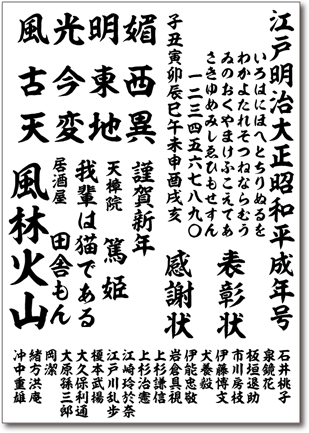 江戸明治大正昭和平成年号
いろはにほへとちりぬるを
わかよたれそつねならむう
ゐのおくやまけふこえてあ
さきゆめみしゑひもせすん
一二三四五六七八九〇
子丑寅卯辰巳午未申酉戌亥
表彰状
感謝状
媚西異
明東地
光今変
風古天
謹賀新年
天樟院 篤姫
我輩は猫である
居酒屋 田舎もん
風林火山
石井桃子
泉鏡花
板垣退助
市川房枝
伊藤博文
犬養毅
伊能忠敬
岩倉具視
上杉謙信
上杉治憲
江崎玲於奈
江戸川乱歩
榎本武揚
大久保利通
大原孫三郎
岡潔
緒方洪庵
沖中重雄